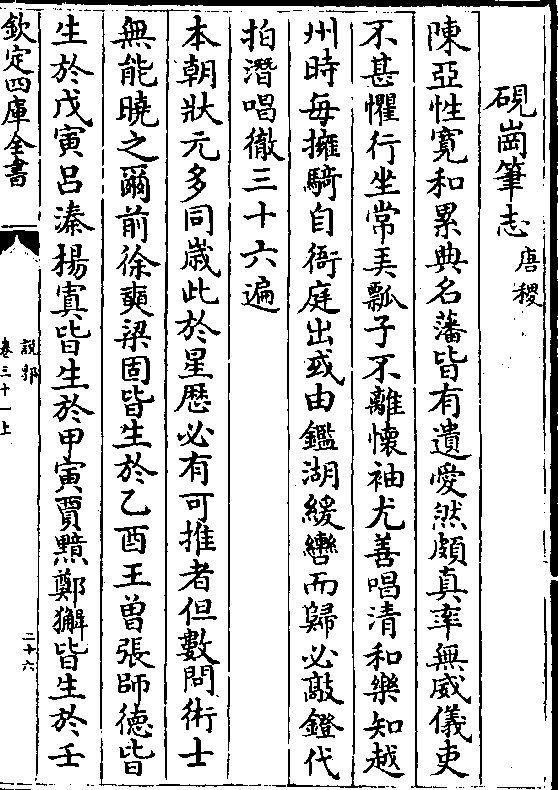 硯崗筆志 唐稷
陳亞性寛和累典名藩皆有遺愛然頗真率無威儀吏
不甚懼行坐常弄瓢子不離懷袖尤善唱清和樂知越
州時每擁騎自衙庭出或由鑑湖緩轡而歸必敲鐙代
拍潛唱徹三十六遍
本朝狀元多同歳此於星厯必有可推者但數問術士
無能曉之爾前徐奭梁固皆生於乙酉王曾張師德皆
生於戊寅吕溱楊寘皆生於甲寅賈黯鄭獬皆生於壬
欽定四庫全書
說郛
卷三十一上
二十六